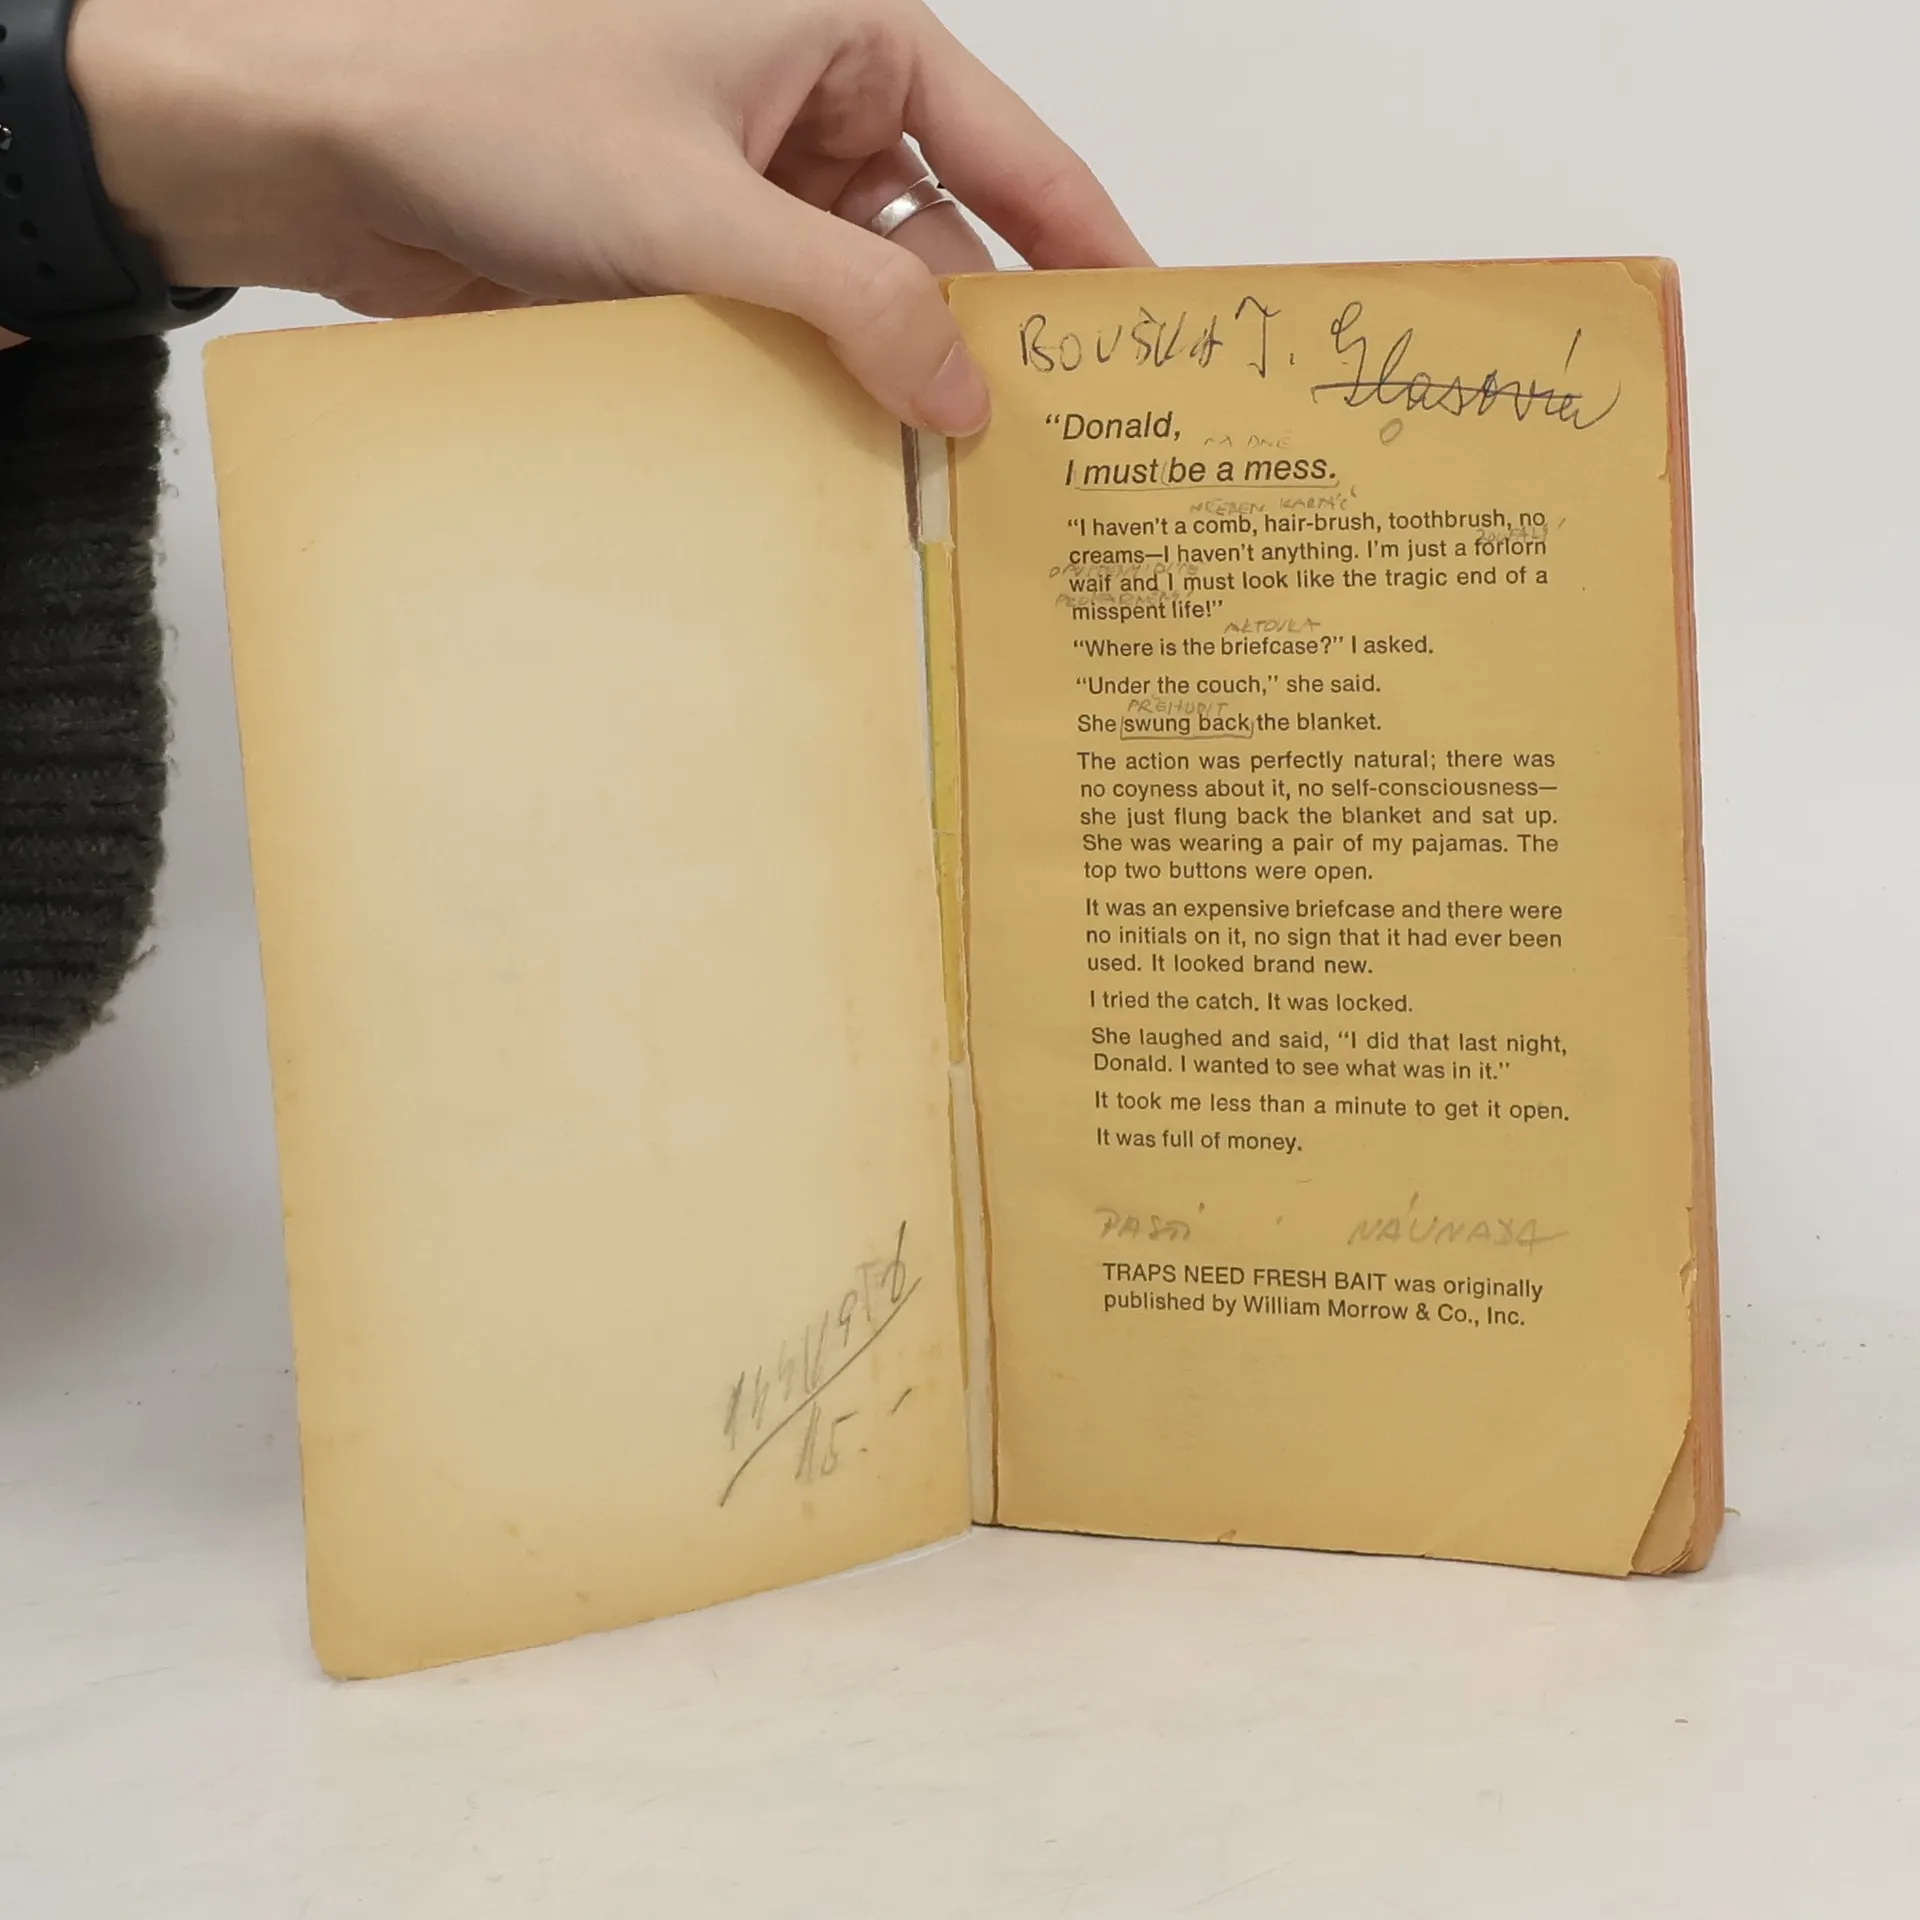 BOUŠKA J. Glasová
"Donald,
NA DNĚ
I must be a mess.
HŘEBEN KARTÁČ
"I haven't a comb, hair-brush, toothbrush, no
ZOUFALÝ
creams—I haven't anything. I'm just a forlorn
waif and I must look like the tragic end of a
misspent life!"
AKTOVKA
"Where is the briefcase?" I asked.
"Under the couch," she said.
PŘEHODIT
She swung back the blanket.
The action was perfectly natural; there was
no coyness about it, no self-consciousness—
she just flung back the blanket and sat up.
She was wearing a pair of my pajamas. The
top two buttons were open.
It was an expensive briefcase and there were
no initials on it, no sign that it had ever been
used. It looked brand new.
I tried the catch. It was locked.
She laughed and said, "I did that last night,
Donald. I wanted to see what was in it."
It took me less than a minute to get it open.
It was full of money.
PASTI NÁVNADA
TRAPS NEED FRESH BAIT was originally
published by William Morrow & Co., Inc.
15.-